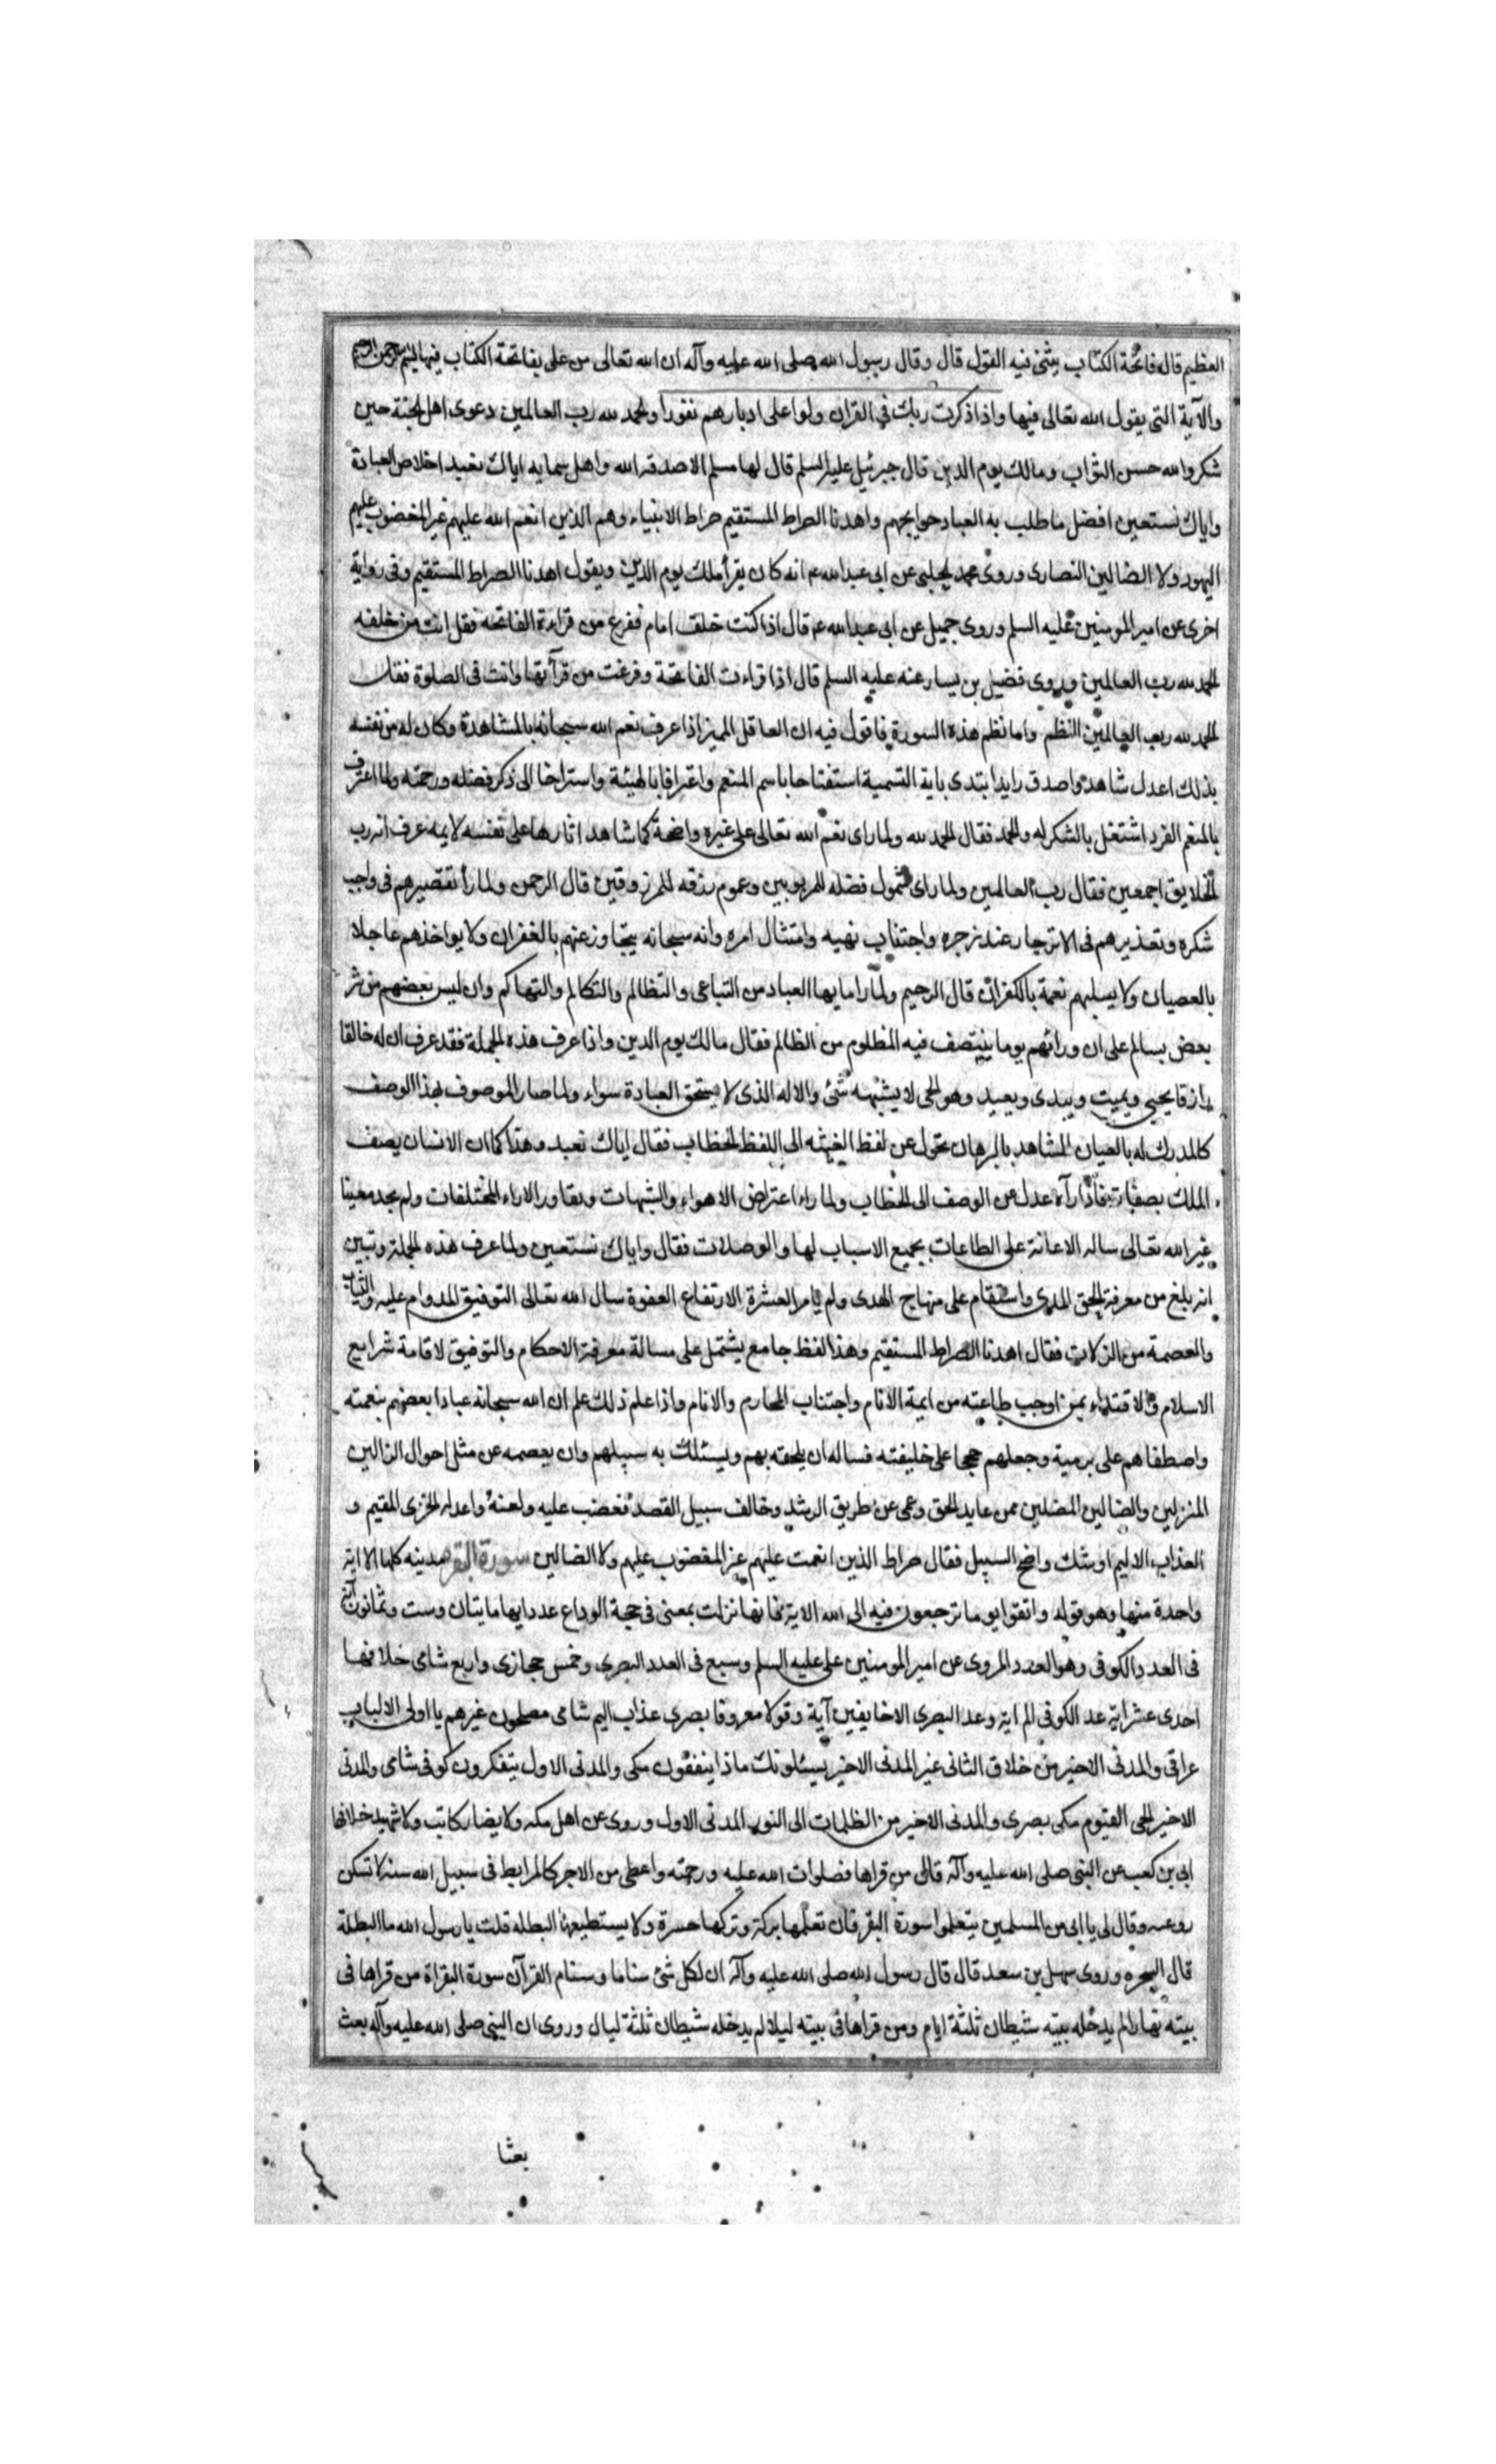 العظيم قال فاتحة الكتاب يثنى فيه القول قال وقال رسول الله صلى الله عليه وآله ان الله تعالى من على بفاتحة الكتاب فيها
والآية التى يقول الله تعالى فيها واذا ذكرت ربك فى القران ولوا على ادبارهم نفورا والحمد لله رب العالمين دعوى اهل الجنة حين
شكروا لله حسن الثواب ومالك يوم الدين قال جبرئيل عليه السلم قال لها مسلم الا صدقه الله واهل سمايه اياك نعبد اخلاص العبادة
واياك نستعين افضل ما طلب به العباد حوايجهم واهدنا الصراط المستقيم صراط الانبياء وهم الذين انعم الله عليهم غير المغضوب عليهم
اليهود ولا الضالين النصارى وروى محمد الحلبى عن ابى عبد الله ع انه كان يقرأ ملك يوم الدين ويقول اهدنا الصراط المستقيم وفى رواية
اخرى عن امير المومنين عليه السلم وروى جميل عن ابى عبد الله ع قال اذا كنت خلف امام ففرغ من قراءة الفاتحة فقل انت من خلفه
الحمد لله رب العالمين وروى فضيل بن يسار عنه عليه السلم قال اذا قراءت الفاتحة وفرغت من قرآتها وانت فى الصلوة فقل
الحمد لله رب العالمين النظم واما نظم هذه السورة فاقول فيه ان العاقل المميز اذا عرف نعم الله سبحانه بالمشاهدة وكان له من نفسه
بذلك اعدل شاهد واصدق رايد ابتدى باية التسمية استفتاحا باسم المنعم واعترافا بالهيئة واسترا‌حا الى ذكر فضله ورحمته ولما اعترف
بالمنعم الفرد اشتغل بالشكر له والحمد فقال الحمد لله ولما راى نعم الله تعالى على غيره واضحة كما شاهد اثارها على نفسه لايمه عرف انه رب
الخلايق اجمعين فقال رب العالمين ولما راى شمول فضله للمربوبين وعموم رزقه للمرزوقين قال الرحمن ولما رأ تقصيرهم فى واجب
شكره وتعذيرهم فى الانزجار عند زجره واجتناب نهيه وامتثال امره وانه سبحانه يتجاوز عنهم بالغفران ولا يواخذهم عاجلا
بالعصيان ولا يسلبهم نعمة بالكفران قال الرحيم ولما را ما بها العباد من التباغى والتظالم والتكالم والتهاكم وان ليس بعضهم من شر
بعض بسالم على ان ورائهم يوما ينتصف فيه المظلوم من الظالم فقال مالك يوم الدين واذا عرف هذه الجملة فقد عرف ان له خالقا
رازقا يحيى ويميت ويبدى ويعيد وهو الحى لا يشبهه شئ والاله الذى لا يستحق العبادة سواه ولما صار الموصوف بهذا الوصف
كالمدرك له بالعيان المشاهد بالبرهان تحول عن لفظ الغيبه الى اللفظ الخطاب فقال اياك نعبد وهذا كما ان الانسان يصف
الملك بصفات فاذا رآه عدل عن الوصف الى الخطاب ولما راء اعتراض الاهواء والشبهات وتعاور الاراء المختلفات ولم يجد معينا
غير الله تعالى ساله الاعانة على الطاعات بجميع الاسباب لها والوصلات فقال واياك نستعين ولما عرف هذه الجملة وتبين
انه بلغ من معرفة الحق المدى واستقام على منهاج الهدى ولم يامن العشرة الارتفاع العفوة سال الله تعالى التوفيق للدوام عليه والثبات
والعصمة من الزلات فقال اهدنا الصراط المستقيم وهذا لفظ جامع يشتمل على مسالة معرفة الاحكام والتوفيق لاقامة شرايع
الاسلام والاقتداء بمن اوجب طاعته من ايمة الانام واجتناب المحارم والاثام واذا علم ذلك علم ان الله سبحانه عبادا بعضهم بنعمته
واصطفاهم على بريته وجعلهم حججا على خليفته فساله ان يلحقه بهم ويسئلك به سبيلهم وان يعصمه عن مثل احوال الزالين
المنزلين والضالين المضلين ممن عايد الحق وعمى عن طريق الرشد وخالف سبيل القصد فغضب عليه ولعنه واعد له الخزى المقيم و
العذاب الاليم او شك واضح السبيل فقال صراط الذين انعمت عليهم غير المغضوب عليهم ولا الضالين سورة البقره مدينه كلها الا اية
واحدة منها وهو قوله واتقوا يوما ترجعون فيه الى الله الاية فانها نزلت بمعنى فى حجة الوداع عدد ايها مايتان وست وثمانون آية
فى العدد الكوفى وهو العدد المروى عن امير المومنين على عليه السلم وسبع فى العدد البصرى وخمس حجازى واربع شامى خلافها
احدى عشر اية عد الكوفى الم اية وعد البصرى الا خايفين آية وقولا معروفا بصرى عذاب اليم شامى مصلحون غيرهم يا اولى الالباب
عراقى والمدنى الاخير من خلاق الثانى غير المدنى الاخير يسئلونك ماذا ينفقون مكى والمدنى الاول يتفكرون كوفى شامى والمدنى
الاخير الحى القيوم مكى بصرى والمدنى الاخير من الظلمات الى النور المدنى الاول وروى عن اهل مكه ولا يضار كاتب ولا شهيد خلافها
ابى بن كعب عن النبى صلى الله عليه وآله قال من قراها فصلوات الله عليه ورحمته واعطى من الاجر كالمرابط فى سبيل الله سنة لا تسكن
روعته وقال لى يا ابى من المسلمين يتعلموا سورة البقر فان تعلمها بركة وتركها حسرة ولا يستطيعها البطله قلت يا رسول الله ما البطلة
قال السحره وروى سهل بن سعد قال قال رسول الله صلى الله عليه وآله ان لكل شئ سناما وسنام القرآن سورة البقراة من قراها فى
بيته نهارا لم يدخله بيته شيطان ثلثة ايام ومن قراها فى بيته ليلا لم يدخله شيطان ثلثة ليال وروى ان النبى صلى الله عليه وآله بعث
بعثا